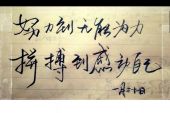 努力到无能为力
拼搏到感动自己
一月二十日